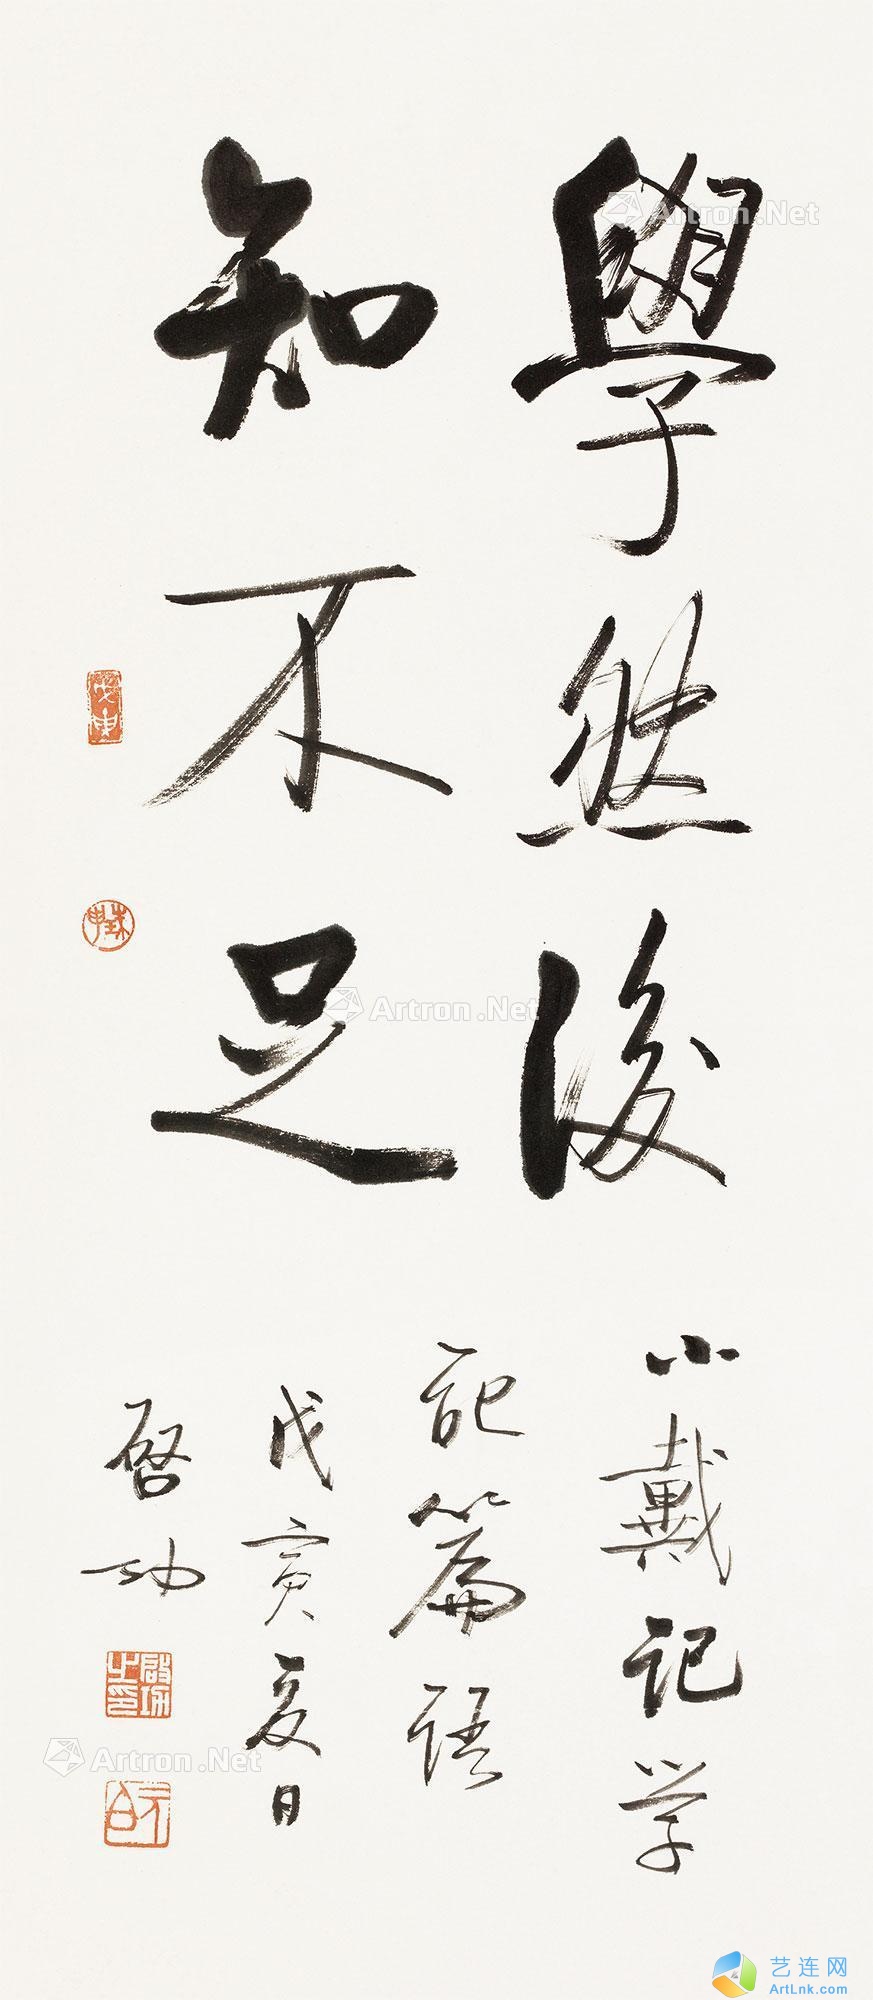 學然後
知不足
小戴记学
記篇語
戊寅夏日
啓功
戊申
啟功之印
元白
Artron.Net
Artron.Net
Artron.Net
艺连网
ArtLnk.com